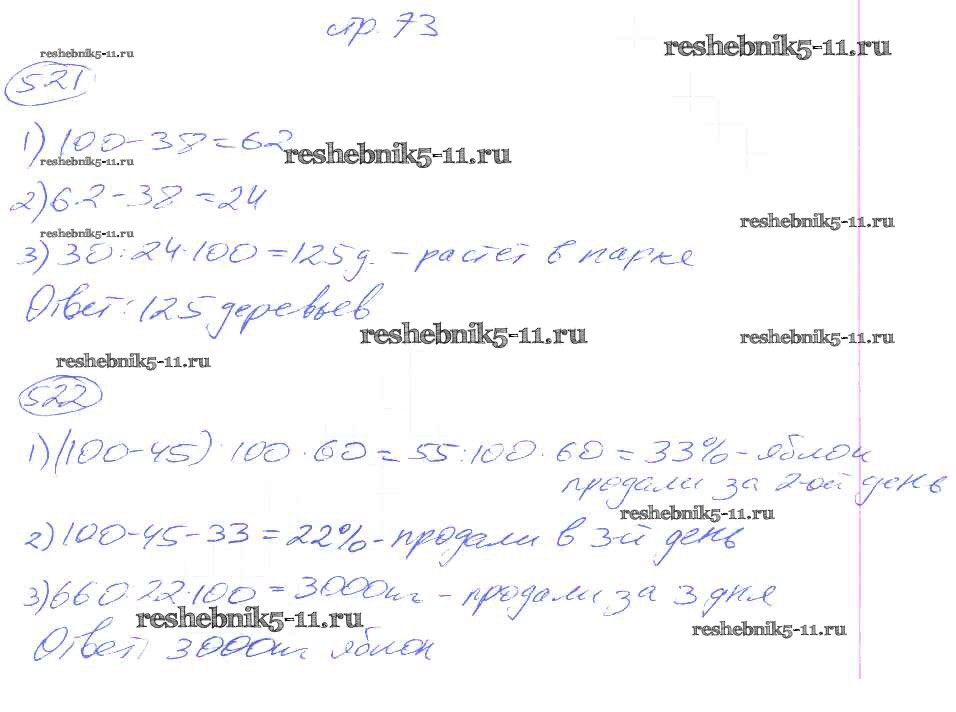 стр. 73
reshebnik5-11.ru
reshebnik5-11.ru
521
1) 100 - 38 = 62
reshebnik5-11.ru
reshebnik5-11.ru
2) 62 - 38 = 24
reshebnik5-11.ru
reshebnik5-11.ru
3) 30 : 24 · 100 = 125 д. - растёт в парке
Ответ: 125 деревьев
reshebnik5-11.ru
reshebnik5-11.ru
reshebnik5-11.ru
522
1) (100-45) : 100 · 60 = 55 : 100 · 60 = 33% - яблок
продали за 2-ой день
reshebnik5-11.ru
2) 100 - 45 - 33 = 22% - продали в 3-й день
3) 660 : 22 · 100 = 3000 кг - продали за 3 дня
reshebnik5-11.ru
reshebnik5-11.ru
Ответ: 3000 кг яблок